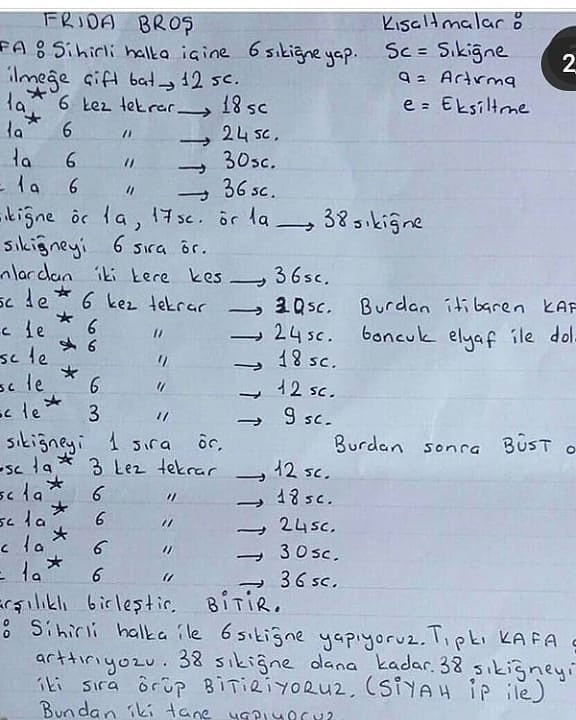 FRIDA BROŞ
Kısaltmalar :
FA : Sihirli halka içine 6 sıkiğne yap. Sc = Sıkiğne
2
ilmeğe çift bat → 12 sc. a = Artırma
1a * 6 kez tekrar → 18 sc e = Eksiltme
1a * 6 " → 24 sc.
1a 6 " → 30 sc.
1a 6 " → 36 sc.
ıkiğne ör 1a, 17 sc. ör 1a → 38 sıkiğne
sıkiğneyi 6 sıra ör.
nlardan iki kere kes → 36 sc.
sc 1e * 6 kez tekrar → 30 sc. Burdan itibaren KAF
c 1e * 6 " → 24 sc. boncuk elyaf ile dol
sc 1e * 6 " → 18 sc.
sc 1e * 6 " → 12 sc.
c 1e * 3 " → 9 sc.
sıkiğneyi 1 sıra ör. Burdan sonra BÜST o
sc 1a * 3 kez tekrar → 12 sc.
sc 1a * 6 " → 18 sc.
sc 1a * 6 " → 24 sc.
c 1a * 6 " → 30 sc.
1a * 6 " → 36 sc.
arşılıklı birleştir. BİTİR.
: Sihirli halka ile 6 sıkiğne yapıyoruz. Tıpkı KAFA
arttırıyozu. 38 sıkiğne dana kadar. 38 sıkiğneyi
iki sıra örüp BİTİRİYORUZ. (SİYAH İP ile)
Bundan iki tane yapıyoruz